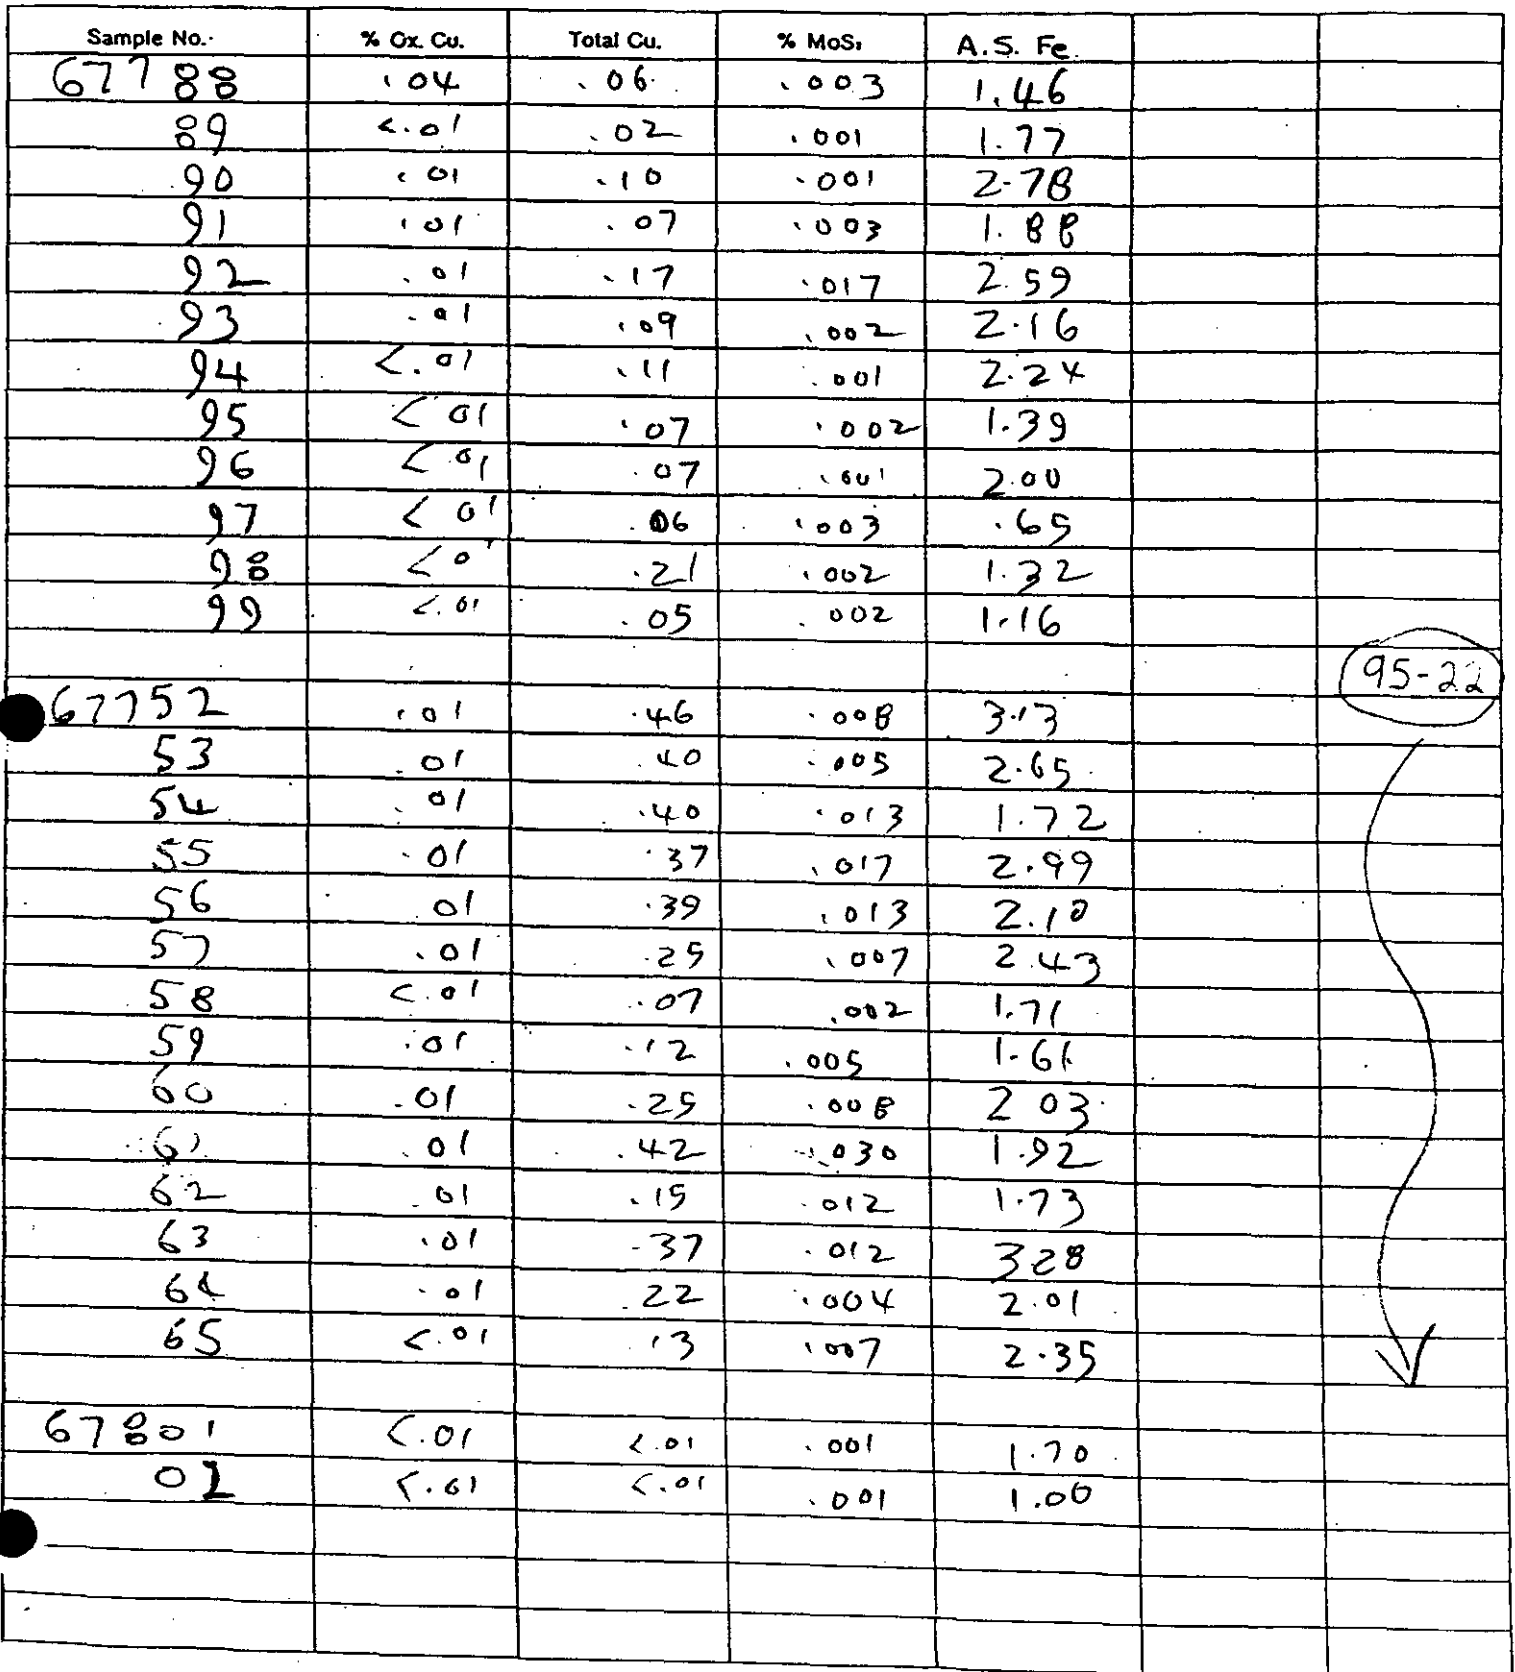 Sample No. % Ox. Cu. Total Cu. % MoS₂ A.S. Fe.
67788 .04 .06 .003 1.46
89 <.01 .02 .001 1.77
90 .01 .10 .001 2.78
91 .01 .07 .003 1.88
92 .01 .17 .017 2.59
93 .01 .09 .002 2.16
94 <.01 .11 .001 2.24
95 <.01 .07 .002 1.39
96 <.01 .07 .001 2.00
97 <01 .06 .003 .65
98 <0 .21 .002 1.32
99 <.01 .05 .002 1.16
95-22
67752 .01 .46 .008 3.13
53 .01 .40 .005 2.65
54 .01 .40 .013 1.72
55 .01 .37 .017 2.99
56 01 .39 .013 2.10
57 .01 .25 .007 2.43
58 <.01 .07 .002 1.71
59 .01 .12 .005 1.61
60 .01 .25 .008 2 03
61 .01 .42 .030 1.92
62 .01 .15 .012 1.73
63 .01 .37 .012 3 28
64 .01 .22 .004 2.01
65 <.01 .13 .007 2.35
67801 <.01 <.01 .001 1.70
02 <.01 <.01 .001 1.00